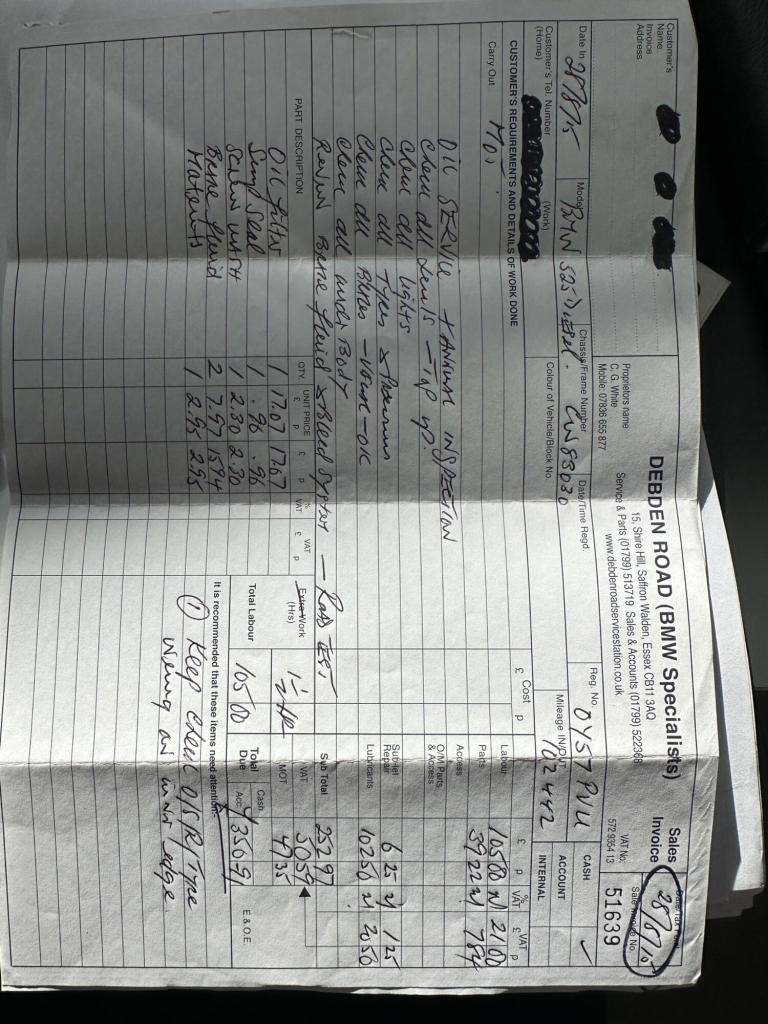 DEBDEN ROAD (BMW Specialists)
15, Shire Hill, Saffron Walden, Essex CB11 3AQ
Service & Parts (01799) 513719 Sales & Accounts (01799) 522368
www.debdenroadservicestation.co.uk
Proprietors name
C. G. White
Mobile: 07836 655 877
Customer's
Name
Invoice
Address:
Sales
Invoice
28/8/15
VAT No:
572 9354 13
Sale Invoice No.
51639
Date In 28/8/15
Model BMW 525 Diesel.
Chassis/Frame Number CW83030
Date/Time Regd.
Reg. No. OY57 PVU
CASH ✓
Customer's Tel. Number
(Home)
(Work)
Colour of Vehicle/Block No.
Mileage IN/OUT 102442
ACCOUNT
INTERNAL
CUSTOMER'S REQUIREMENTS AND DETAILS OF WORK DONE
Cost
£ p
£ p % VAT £ VAT p
Carry Out MOT.
Labour 105 00 21 00
OIL SERVICE + ANNUAL INSPECTION
Parts 39 22 7 84
Check all Levels - Top up.
Access
Check all lights
O/M Parts
& Access
Check all Tyres & Pressures
Sub-let
Repair 6 25 1 25
Check all Brakes - Visual - OK
Lubricants 102 50 20 50
Check all under Body
Renew Brake fluid & Bleed System - Road Test.
Sub Total 252 97
PART DESCRIPTION
QTY.
UNIT PRICE
£ p
£ p
% VAT
VAT
£ p
Extra Work
(Hrs)
1½ HR
VAT 50 59
MOT 47 35
Oil filter 1 17.07 17.07
Sump Seal 1 .96 .96
Total Labour 105 00
Total
Due
Cash
Acc.
350 91
E & O.E.
Screen wash 1 2.30 2.30
Brake fluid 2 7.97 15.94
Materials 1 2.95 2.95
It is recommended that these items need attention:-
① Keep check O/S/R Tyre
wearing on inner edge.